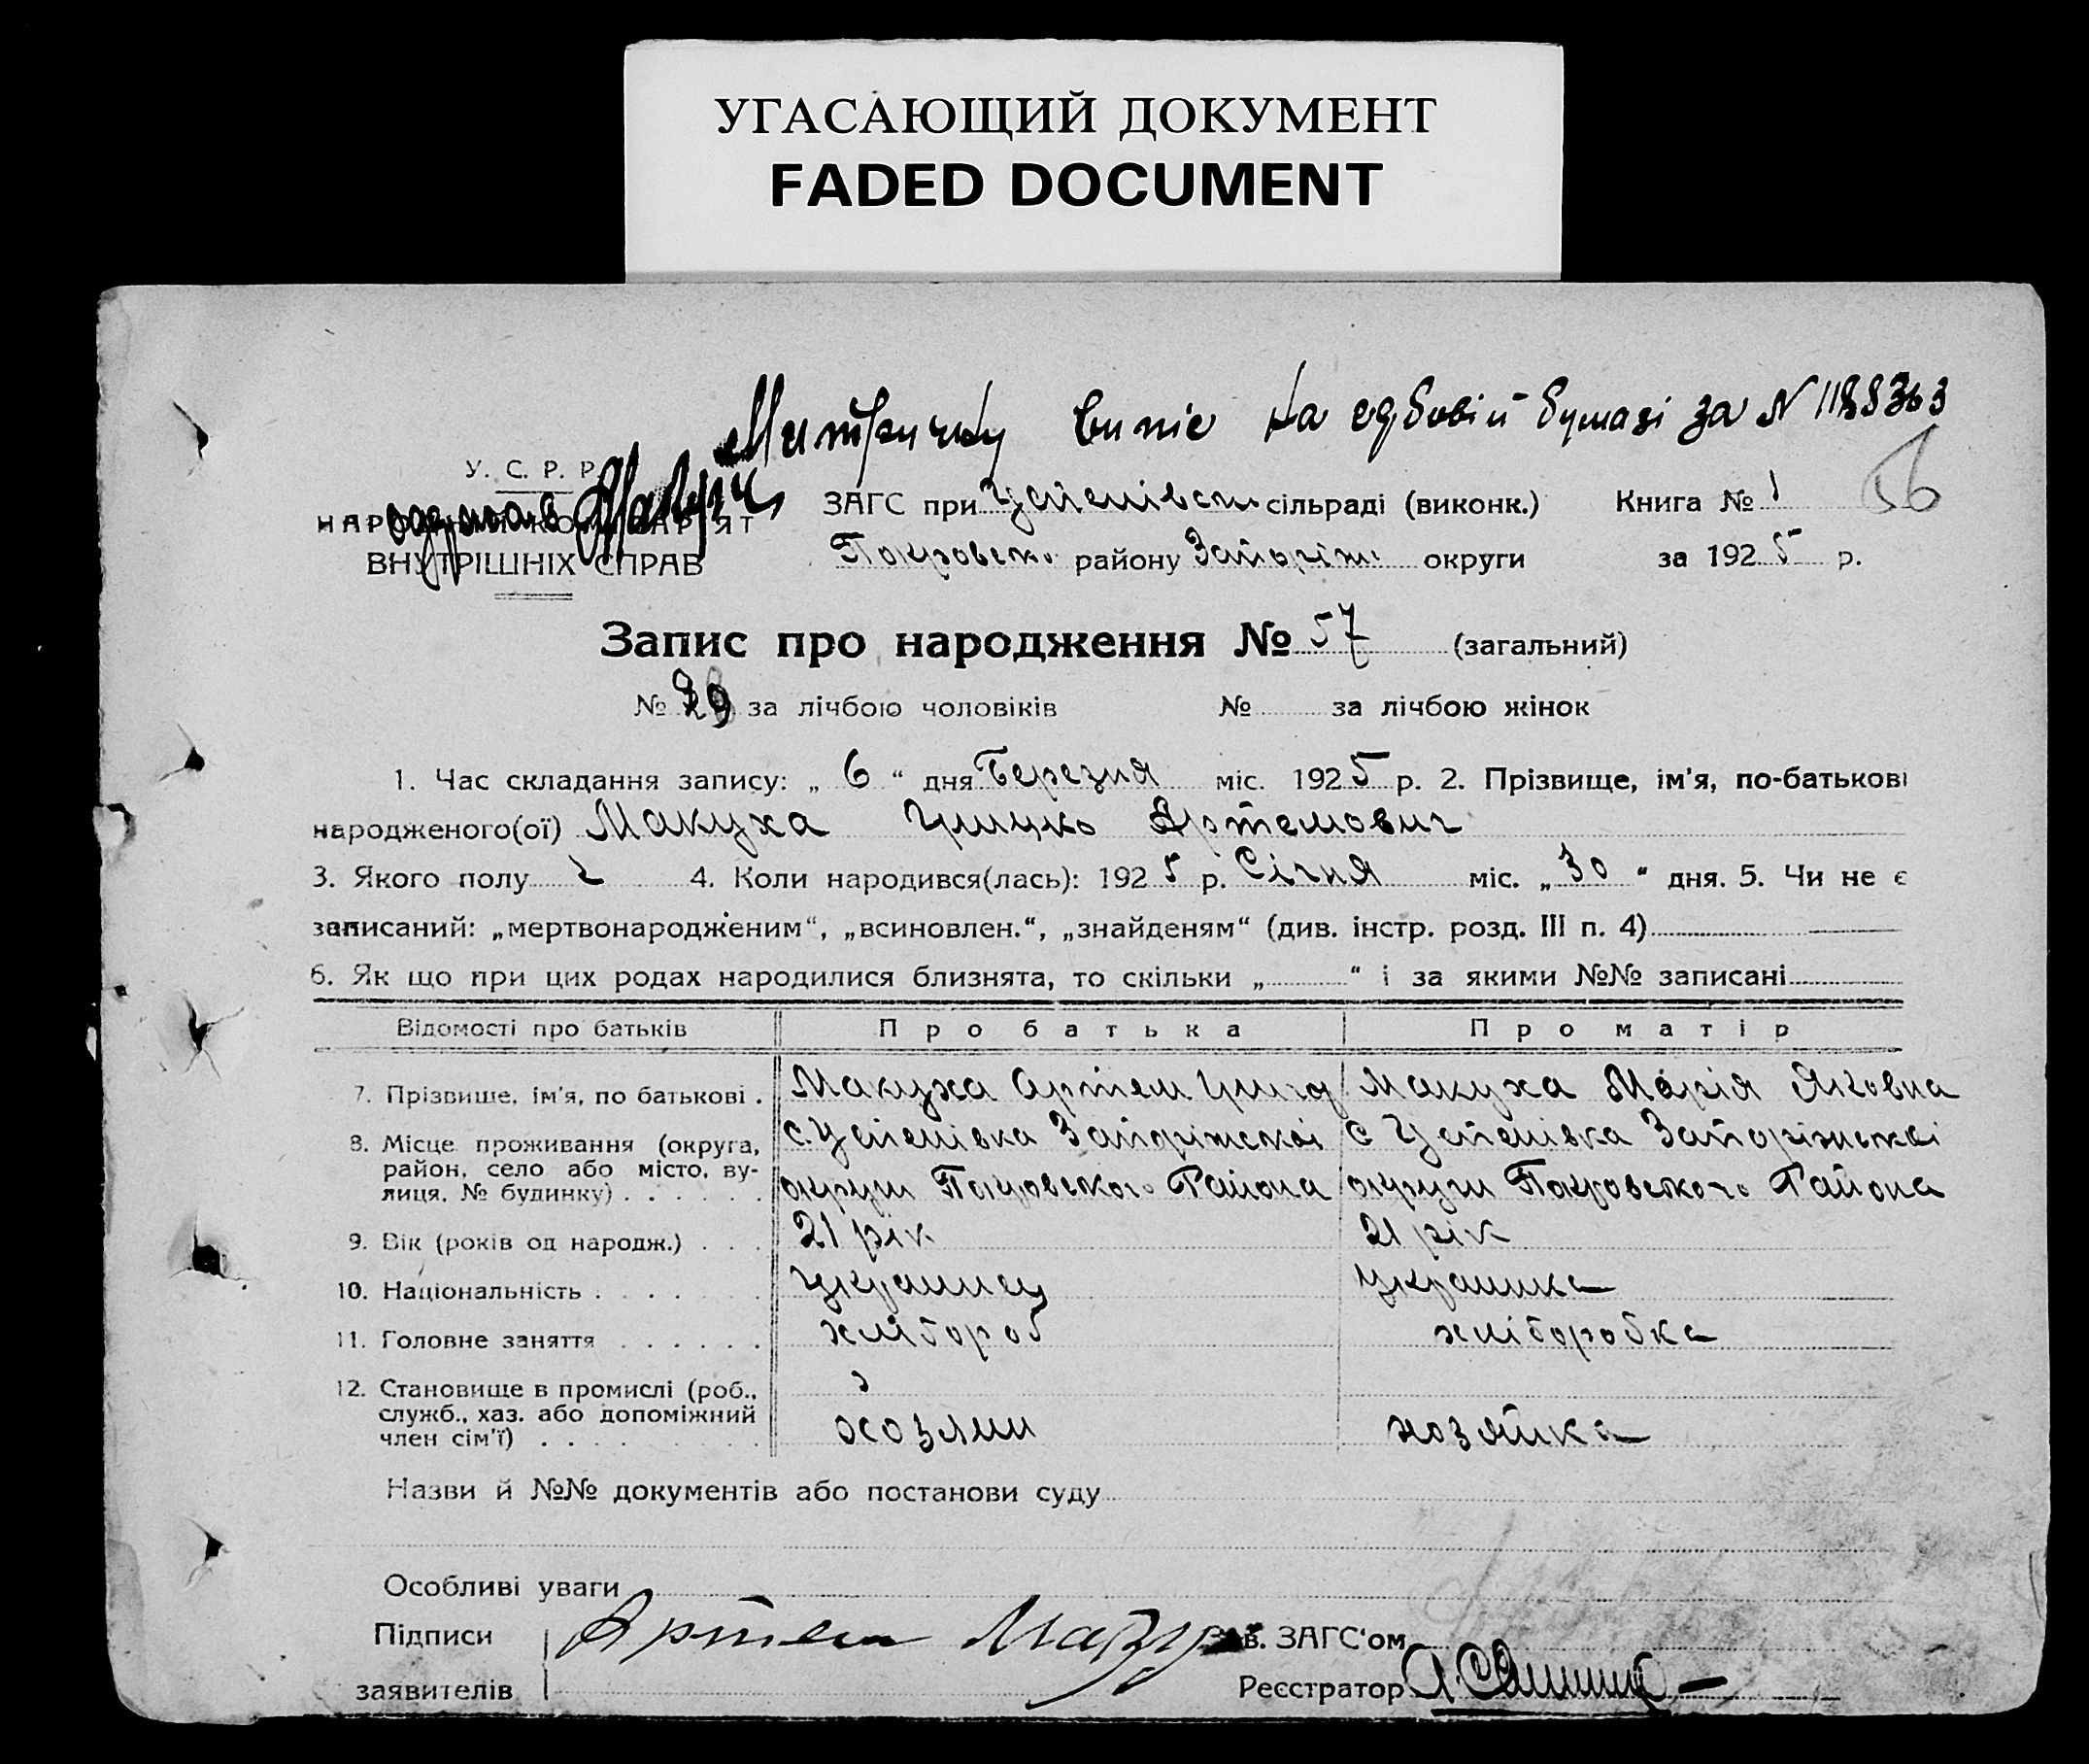 УГАСАЮЩИЙ ДОКУМЕНТ
FADED DOCUMENT
Метричку виніс на гербовій бумазі за N 1188363
У. С. Р. Р.
НАРОДНИЙ КОМІСАРІЯТ
ВНУТРІШНІХ СПРАВ
ЗАГС при Успенівськ сільраді (виконк.) Книга № 1 56
Покровськ району Запоріж округи за 1925 р.
Запис про народження № 57 (загальний)
№ 29 за лічбою чоловіків № за лічбою жінок
1. Час складання запису: „ 6 “ дня Березня міс. 1925 р. 2. Прізвище, ім'я, по-батькові
народженого(ої) Макуха Грицько Артемович
3. Якого полу ч 4. Коли народився(лась): 1925 р. Січня міс. „ 30 “ дня. 5. Чи не є
записаний: „мертвонародженим“, „всиновлен.“, „знайденям“ (див. інстр. розд. III п. 4)
6. Як що при цих родах народилися близнята, то скільки „ “ і за якими №№ записані
Відомості про батьків Про батька Про матір
7. Прізвище, ім'я, по батькові . Макуха Артем Григор Макуха Марія Яковна
8. Місце проживання (округа, район, село або місто, вулиця, № будинку) . . . . . . с. Успенівка Запоріжскоі округи Покровського Района с Успенівка Запоріжскоі округи Покровського Района
9. Вік (років од народж.) . . . 21 рік 21 рік
10. Національність . . . . . . . украинец украинка
11. Головне заняття . . . . . . хлібороб хліборобка
12. Становище в промислі (роб., служб., хаз. або допоміжний член сім'ї) . . . . . . . хозяин хозяйка
Назви й №№ документів або постанови суду
Особливі уваги
Підписи Артем Зав. ЗАГС'ом
заявителів Реєстратор